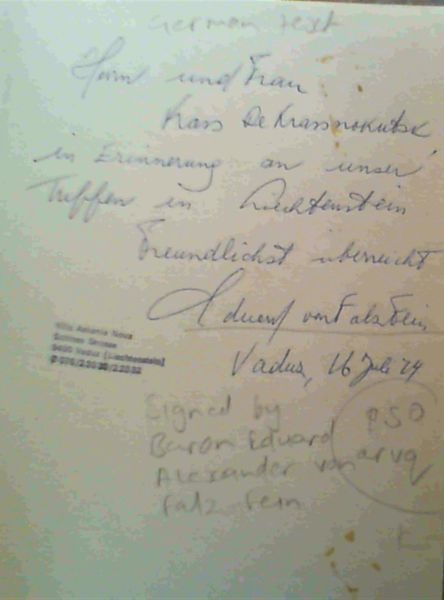 German text
Herrn und Frau
Krass De Krassnokutsk
in Erinnerung an unser
Treffen in Liechtenstein
Freundlichst überreicht
Eduard von Falz Fein
Vaduz, 16 Juli 79
Villa Askania Nova
Schloss Strasse
9490 Vaduz (Liechtenstein)
Signed by
Baron Eduard
Alexander von
Falz Fein
P50
arvq